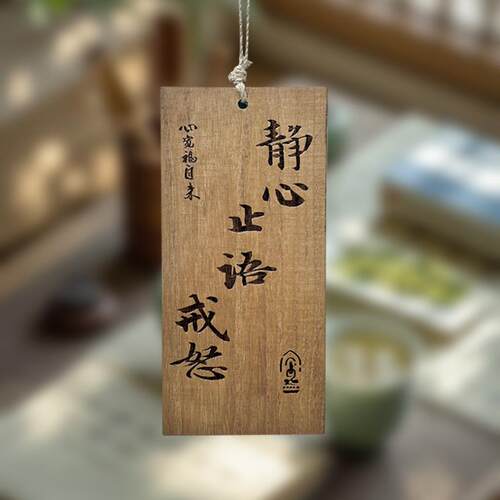 静心
止语
戒怒
心宽福自来